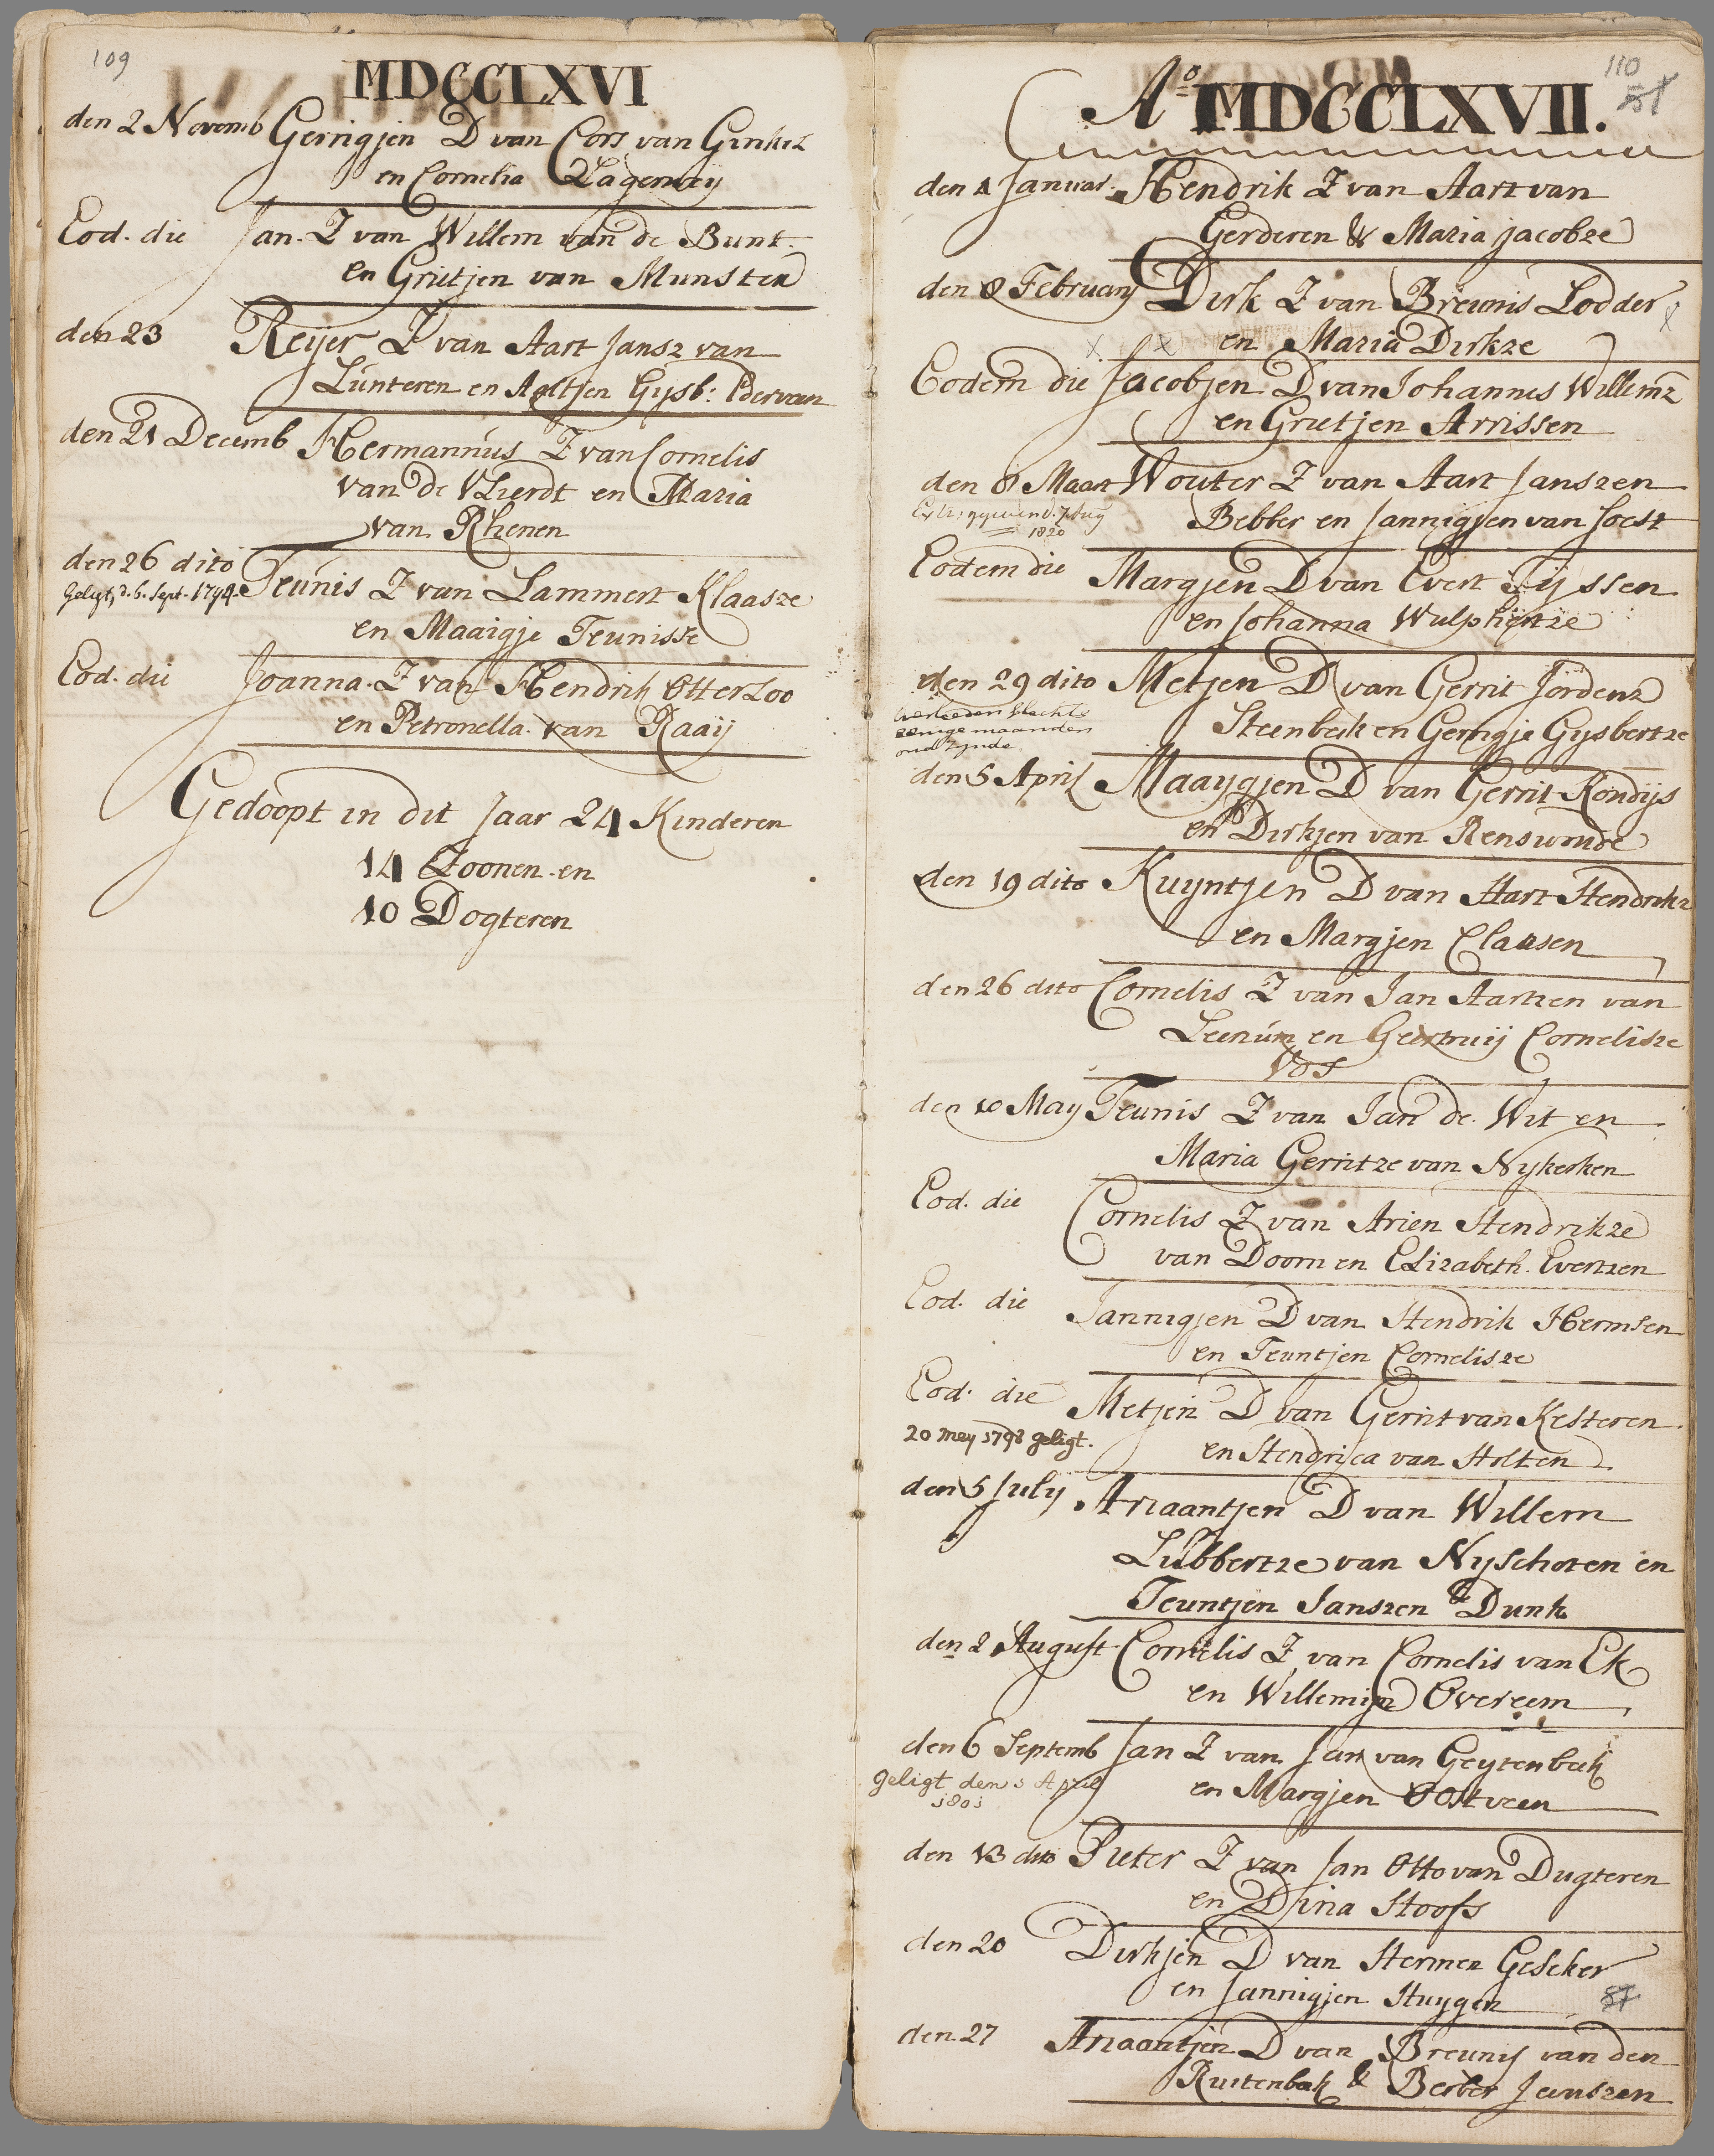 109
MDCCLXVI
den 2 Novemb Gerrigjen D van Cors van Ginkel
en Cornelia Lagemeij
Eod. die Jan. Z van Willem van de Bunt.
en Grietjen van Munster
den 23 Reijer Z van Aart Jansz van
Lunteren en Aaltjen Gijsb:
den 21 Decemb Hermannus Z van Cornelis
van de Vlierdt en Maria
van Rhenen
den 26 dito Teunis Z van Lammert Klaasze
geligt, d. 6. Sept. 1794.
en Maaigje Teunisse
Eod. die Joanna. Z van Hendrik Otterloo
en Petronella van Raaij
Gedoopt in dit Jaar 24 Kinderen
14 Zoonen en
10 Dogteren
110
51
Ao MDCCLXVII.
den 1 Januar. Hendrik Z van Aart van
Gerderen & Maria Jacobze
den 8 February Dirk Z van Breunis Lodder
en Maria Dirkze
Eodem die Jacobjen D van Johannes Willemz
en Grietjen Arrissen
den 8 Maart Wouter Z van Aart Janszen
Extr: gegeven d. 7 Aug
1820
Bebber en Jannigjen van Soest
Eodem die Margjen D van Evert Tijssen
en Johanna Wulphertze
den 29 dito Metjen D van Gerrit Jordenz
overleeden slechts
eenige maanden
oud zynde
Steenbeek en Gerrigje Gysbertze
den 5 April Maaygjen D van Gerrit Kondijs
en Dirkjen van Renswoude
den 19 dito Kuyntjen D van Hart Hendrikz
en Margjen Claasen
den 26 dito Cornelis Z van Jan Aartzen van
Leenum en Geertruij Cornelisze
Vos
den 10 May Teunis Z van Jan de Wit en
Maria Gerritze van Nykerken
Eod. die Cornelis Z van Arien Hendrikze
van Doorn en Elizabeth. Evertzen
Eod. die Jannigjen D van Hendrik Hermsen
en Teuntjen Cornelisze
Eod. die Metjen D van Gerrit van Kesteren
20 mey 1798 geligt.
en Hendrica van Holten
den 5 July Ariaantjen D van Willem
Lubbertze van Nyschoten en
Teuntjen Janszen Dunk
den 2 August Cornelis Z van Cornelis van Ek
en Willemijn Overeem
den 6 Septemb Jan Z van Jan van Geytenbeek
geligt den 3 April
1801
en Margjen Oostveen
den 13 dito Pieter Z van Jan Otto van Dugteren
en Dina Hoofs
den 20 Dirkjen D van Hermen Geseker
en Jannigjen Huygen
57
den 27 Ariaantjen D van Breunis van den
Ruitenbeek & Berber Janszen